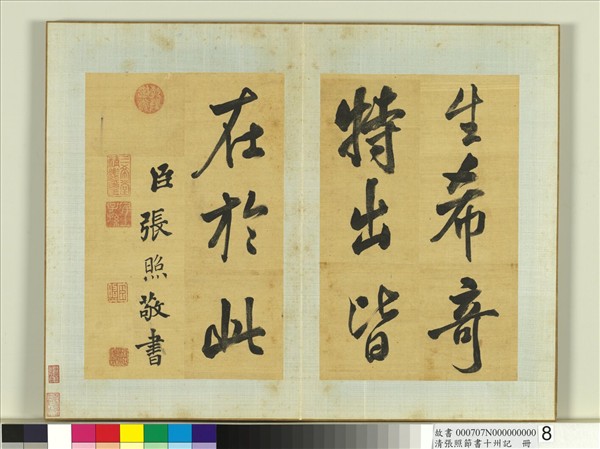 生希奇
特出皆
在於此
臣張照敬書
故書 000707N000000000
清張照節書十州記 冊
8